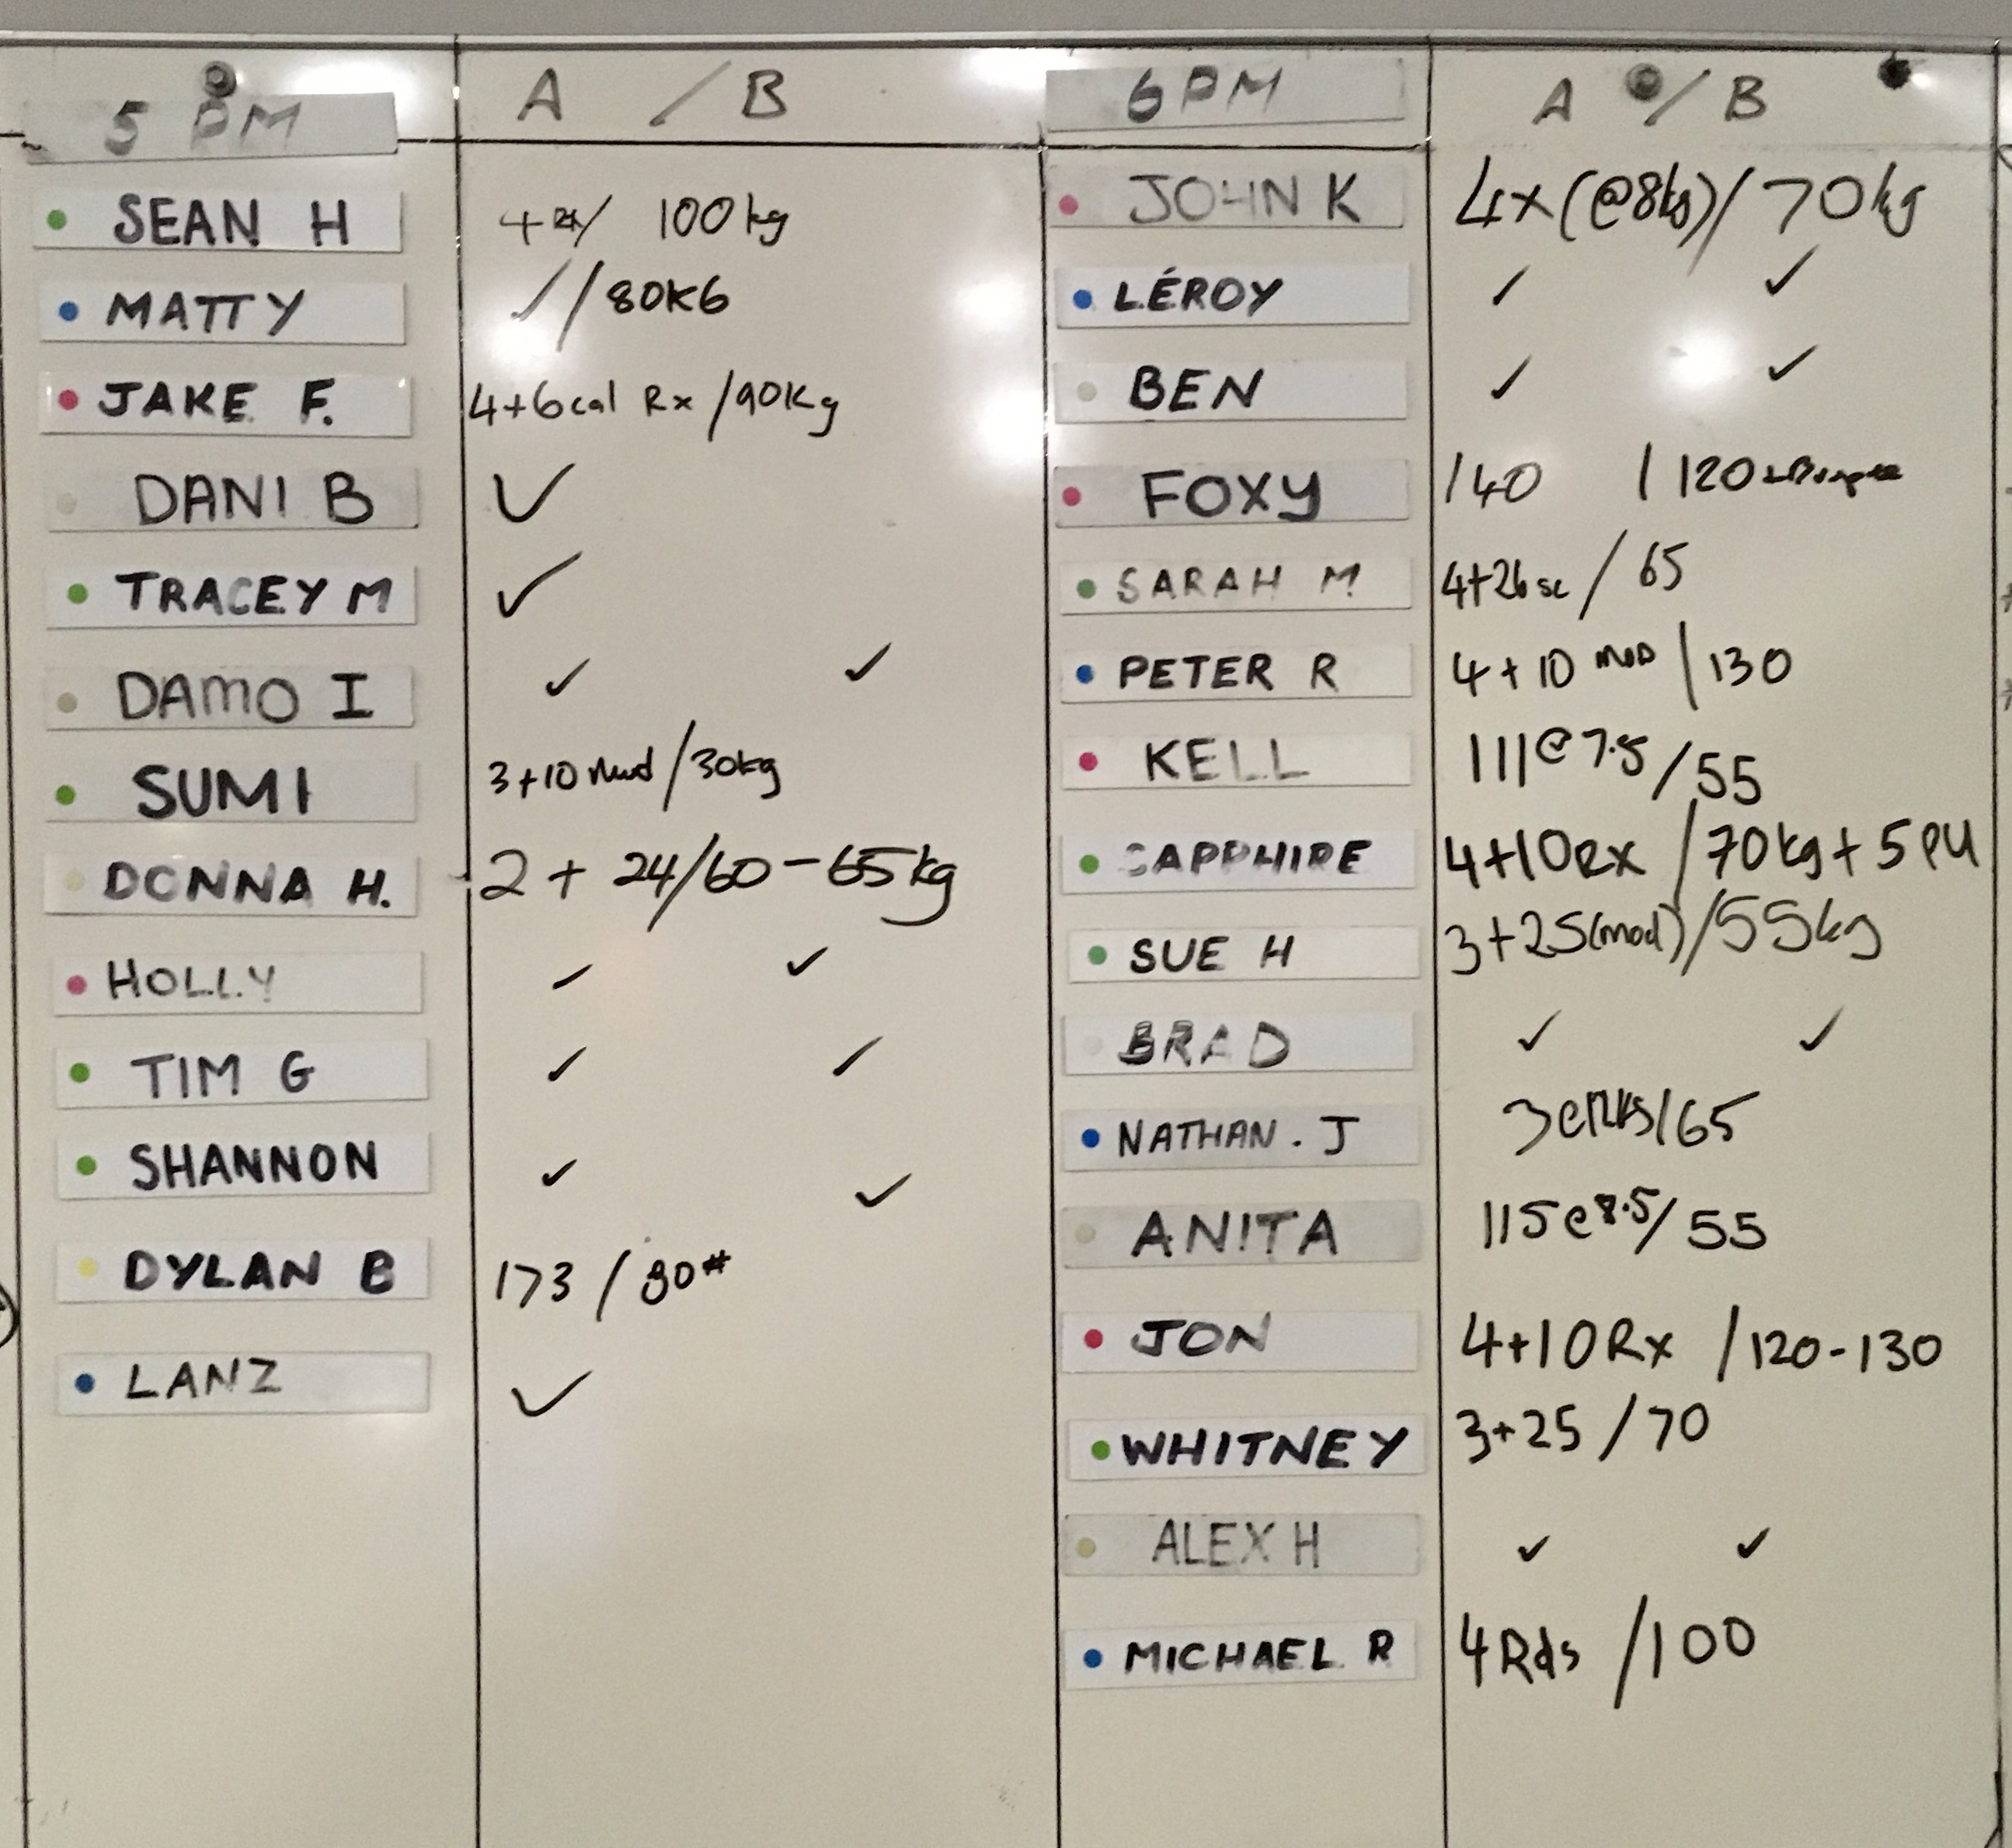 5 PM A / B
SEAN H / 100kg
MATTY ✓ / 80KG
JAKE F. 4+6cal Rx / 90Kg
DANI B ✓
TRACEY M ✓
DAMO I ✓ ✓
SUMI 3+10 Mod / 30kg
DONNA H. 2 + 24/60-65kg
HOLLY ✓ ✓
TIM G ✓ ✓
SHANNON ✓ ✓
DYLAN B 173 / 80#
LANZ ✓
6PM A / B
JOHN K 4x (@8kg) / 70kg
LÉROY ✓ ✓
BEN ✓ ✓
FOXY 140 / 120
SARAH M 4+26 sc / 65
PETER R 4+10 MOD / 130
KELL 111@7.5 / 55
SAPPHIRE 4+10RX / 70kg + 5PU
SUE H 3+25(mod) / 55kg
BRAD ✓ ✓
NATHAN. J 3@12kg / 65
ANITA 115@8.5 / 55
JON 4+10 Rx / 120-130
WHITNEY 3+25 / 70
ALEX H ✓ ✓
MICHAEL R 4 Rds / 100